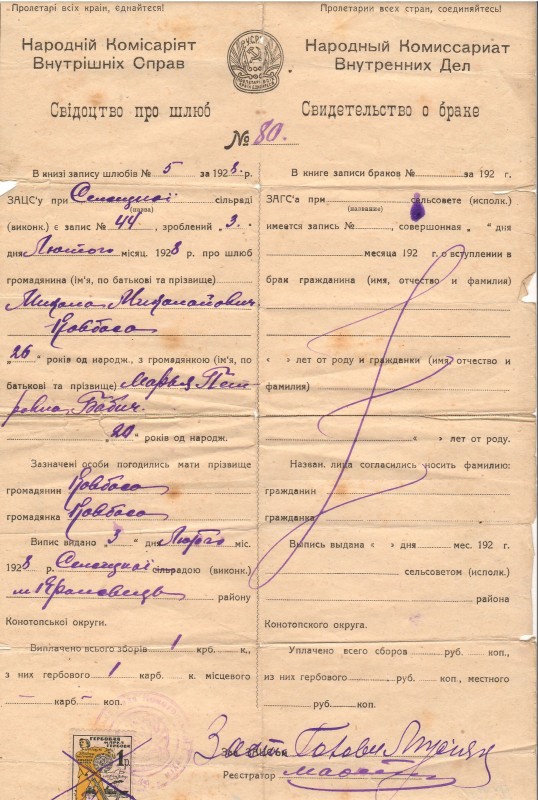 Пролетарі всіх країн, єднайтеся!
Народній Комісаріят
Внутрішніх Справ
Свідоцтво про шлюб
Пролетарии всех стран, соединяйтесь!
Народный Комиссариат
Внутренних Дел
Свидетельство о браке
№ 80.
В книзі запису шлюбів № 5 за 1928. р.
ЗАЦС'у при сільраді
(назва)
(виконк.) є запис № 44, зроблений „ 3. „
дня Лютого місяц. 1928 р. про шлюб
громадянина (ім'я, по батькові та прізвище)
Михайлович
Ковбаса
„26“ років од народж., з громадянкою (ім'я, по
батькові та прізвище)
Бабич.
„20“ років од народж.
Зазначені особи погодились мати прізвище
громадянин Ковбаса
громадянка Ковбаса
Випис видано „3“ дня Лютого міс.
1928 р. сільрадою (виконк.)
району
Конотопської округи.
Виплачено всього зборів 1 крб. к.,
з них гербового 1 карб. к. місцевого
– карб – коп.
ГЕРБОВАЯ
МАРКА
1 р.
В книге записи браков № за 192 г.
ЗАГС'а при сельсовете (исполк.)
(название)
имеется запись № , совершонная „ “ дня
месяца 192 г. о вступлении в
брак гражданина (имя, отчество и фамилия)
« » лет от роду и гражданки (имя, отчество и
фамилия)
« » лет от роду.
Назван. лица согласились носить фамилию:
гражданин
гражданка
Выпись выдана « » дня мес. 192 г.
сельсоветом (исполк.)
района
Конотопского округа.
Уплачено всего сборов руб. коп.,
из них гербового руб. коп., местного
руб. коп.
Реєстратор